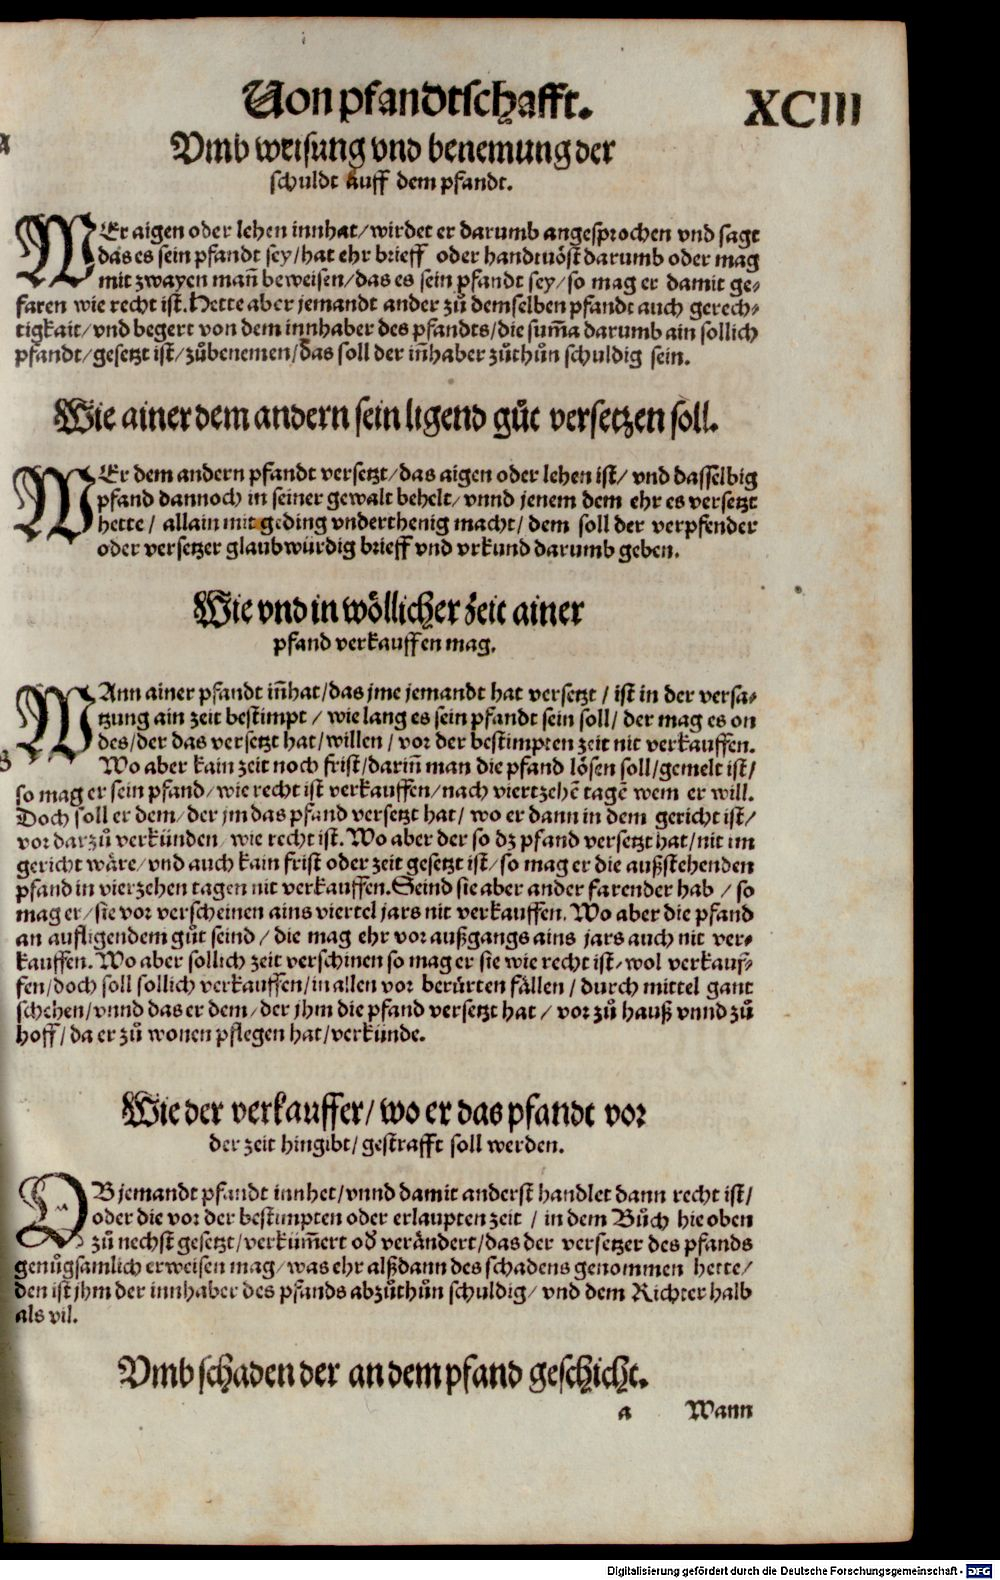 Von pfandtschafft.
XCIII
Vmb weisung vnd benemung der
schuldt auff dem pfandt.
WEr aigen oder lehen innhat/wirdet er darumb angesprochen vnd sagt
das es sein pfandt sey/hat ehr brieff oder handtuöst darumb oder mag
mit zwayen mañ beweisen/das es sein pfandt sey/so mag er damit ge-
faren wie recht ist. Hette aber jemandt ander zů demselben pfandt auch gerech-
tigkait/vnd begert von dem innhaber des pfandts/die sum̃a darumb ain sollich
pfandt/gesetzt ist/zůbenemen/das soll der iñhaber zůthůn schuldig sein.
Wie ainer dem andern sein ligend gůt versetzen soll.
WEr dem andern pfandt versetzt/das aigen oder lehen ist/vnd dasselbig
pfand dannoch in seiner gewalt behelt/vnnd jenem dem ehr es versetzt
hette/allain mit geding vnderthenig macht/dem soll der verpfender
oder versetzer glaubwürdig brieff vnd vrkund darumb geben.
Wie vnd in wöllicher zeit ainer
pfand verkauffen mag.
WAnn ainer pfandt iñhat/das jme jemandt hat versetzt/ist in der versa-
tzung ain zeit bestimpt/wie lang es sein pfandt sein soll/der mag es on
des/der das versetzt hat/willen/vor der bestimpten zeit nit verkauffen.
B
Wo aber kain zeit noch frist/dariñ man die pfand lösen soll/gemelt ist/
so mag er sein pfand/wie recht ist verkauffen/nach viertzehẽ tagẽ wem er will.
Doch soll er dem/der jm das pfand versetzt hat/wo er dann in dem gericht ist/
vor darzů verkünden/wie recht ist. Wo aber der so dz pfand versetzt hat/nit im
gericht wäre/vnd auch kain frist oder zeit gesetzt ist/so mag er die außstehenden
pfand in vierzehen tagen nit verkauffen. Seind sie aber ander farender hab/so
mag er/sie vor verscheinen ains viertel jars nit verkauffen. Wo aber die pfand
an aufligendem gůt seind/die mag ehr vor außgangs ains jars auch nit ver-
kauffen. Wo aber sollich zeit verschinen so mag er sie wie recht ist/wol verkauf-
fen/doch soll sollich verkauffen/in allen vor berürten fällen/durch mittel gant
schehen/vnnd das er dem/der jhm die pfand versetzt hat/vor zů hauß vnnd zů
hoff/da er zů wonen pflegen hat/verkünde.
Wie der verkauffer/wo er das pfandt vor
der zeit hingibt/gestrafft soll werden.
OB jemandt pfandt innhet/vnnd damit anderst handlet dann recht ist/
oder die vor der bestimpten oder erlaupten zeit/in dem Bůch hie oben
zů nechst gesetzt/verküm̃ert od̕ verändert/das der versetzer des pfands
genůgsamlich erweisen mag/was ehr alßdann des schadens genommen hette/
den ist jhm der innhaber des pfands abzůthůn schuldig/vnd dem Richter halb
als vil.
Vmb schaden der an dem pfand geschicht.
a
Wann
Digitalisierung gefördert durch die Deutsche Forschungsgemeinschaft - DFG